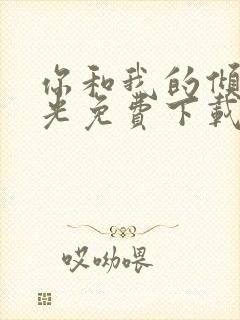 你和我的倾
光免費下載
哎呦喂